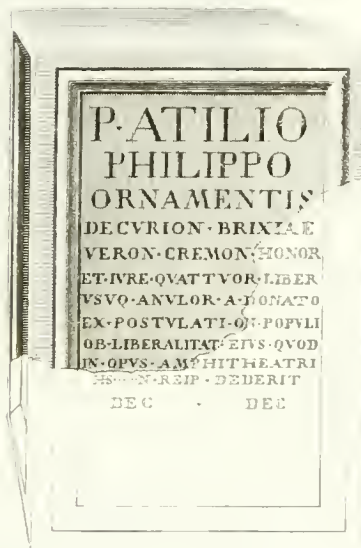 P·ATILIO
PHILIPPO
ORNAMENTIS
DECVRION·BRIXIAE
VERON·CREMON·HONOR
ET·IVRE·QVATTVOR·LIBER
VSVQ·ANVLOR·A·DONATO
EX·POSTVLATION·POPVLI
OB·LIBERALITAT·EIVS·QVOD
IN·OPVS·AMPHITHEATRI
HS····N·REIP·DEDERIT
DEC · DEC